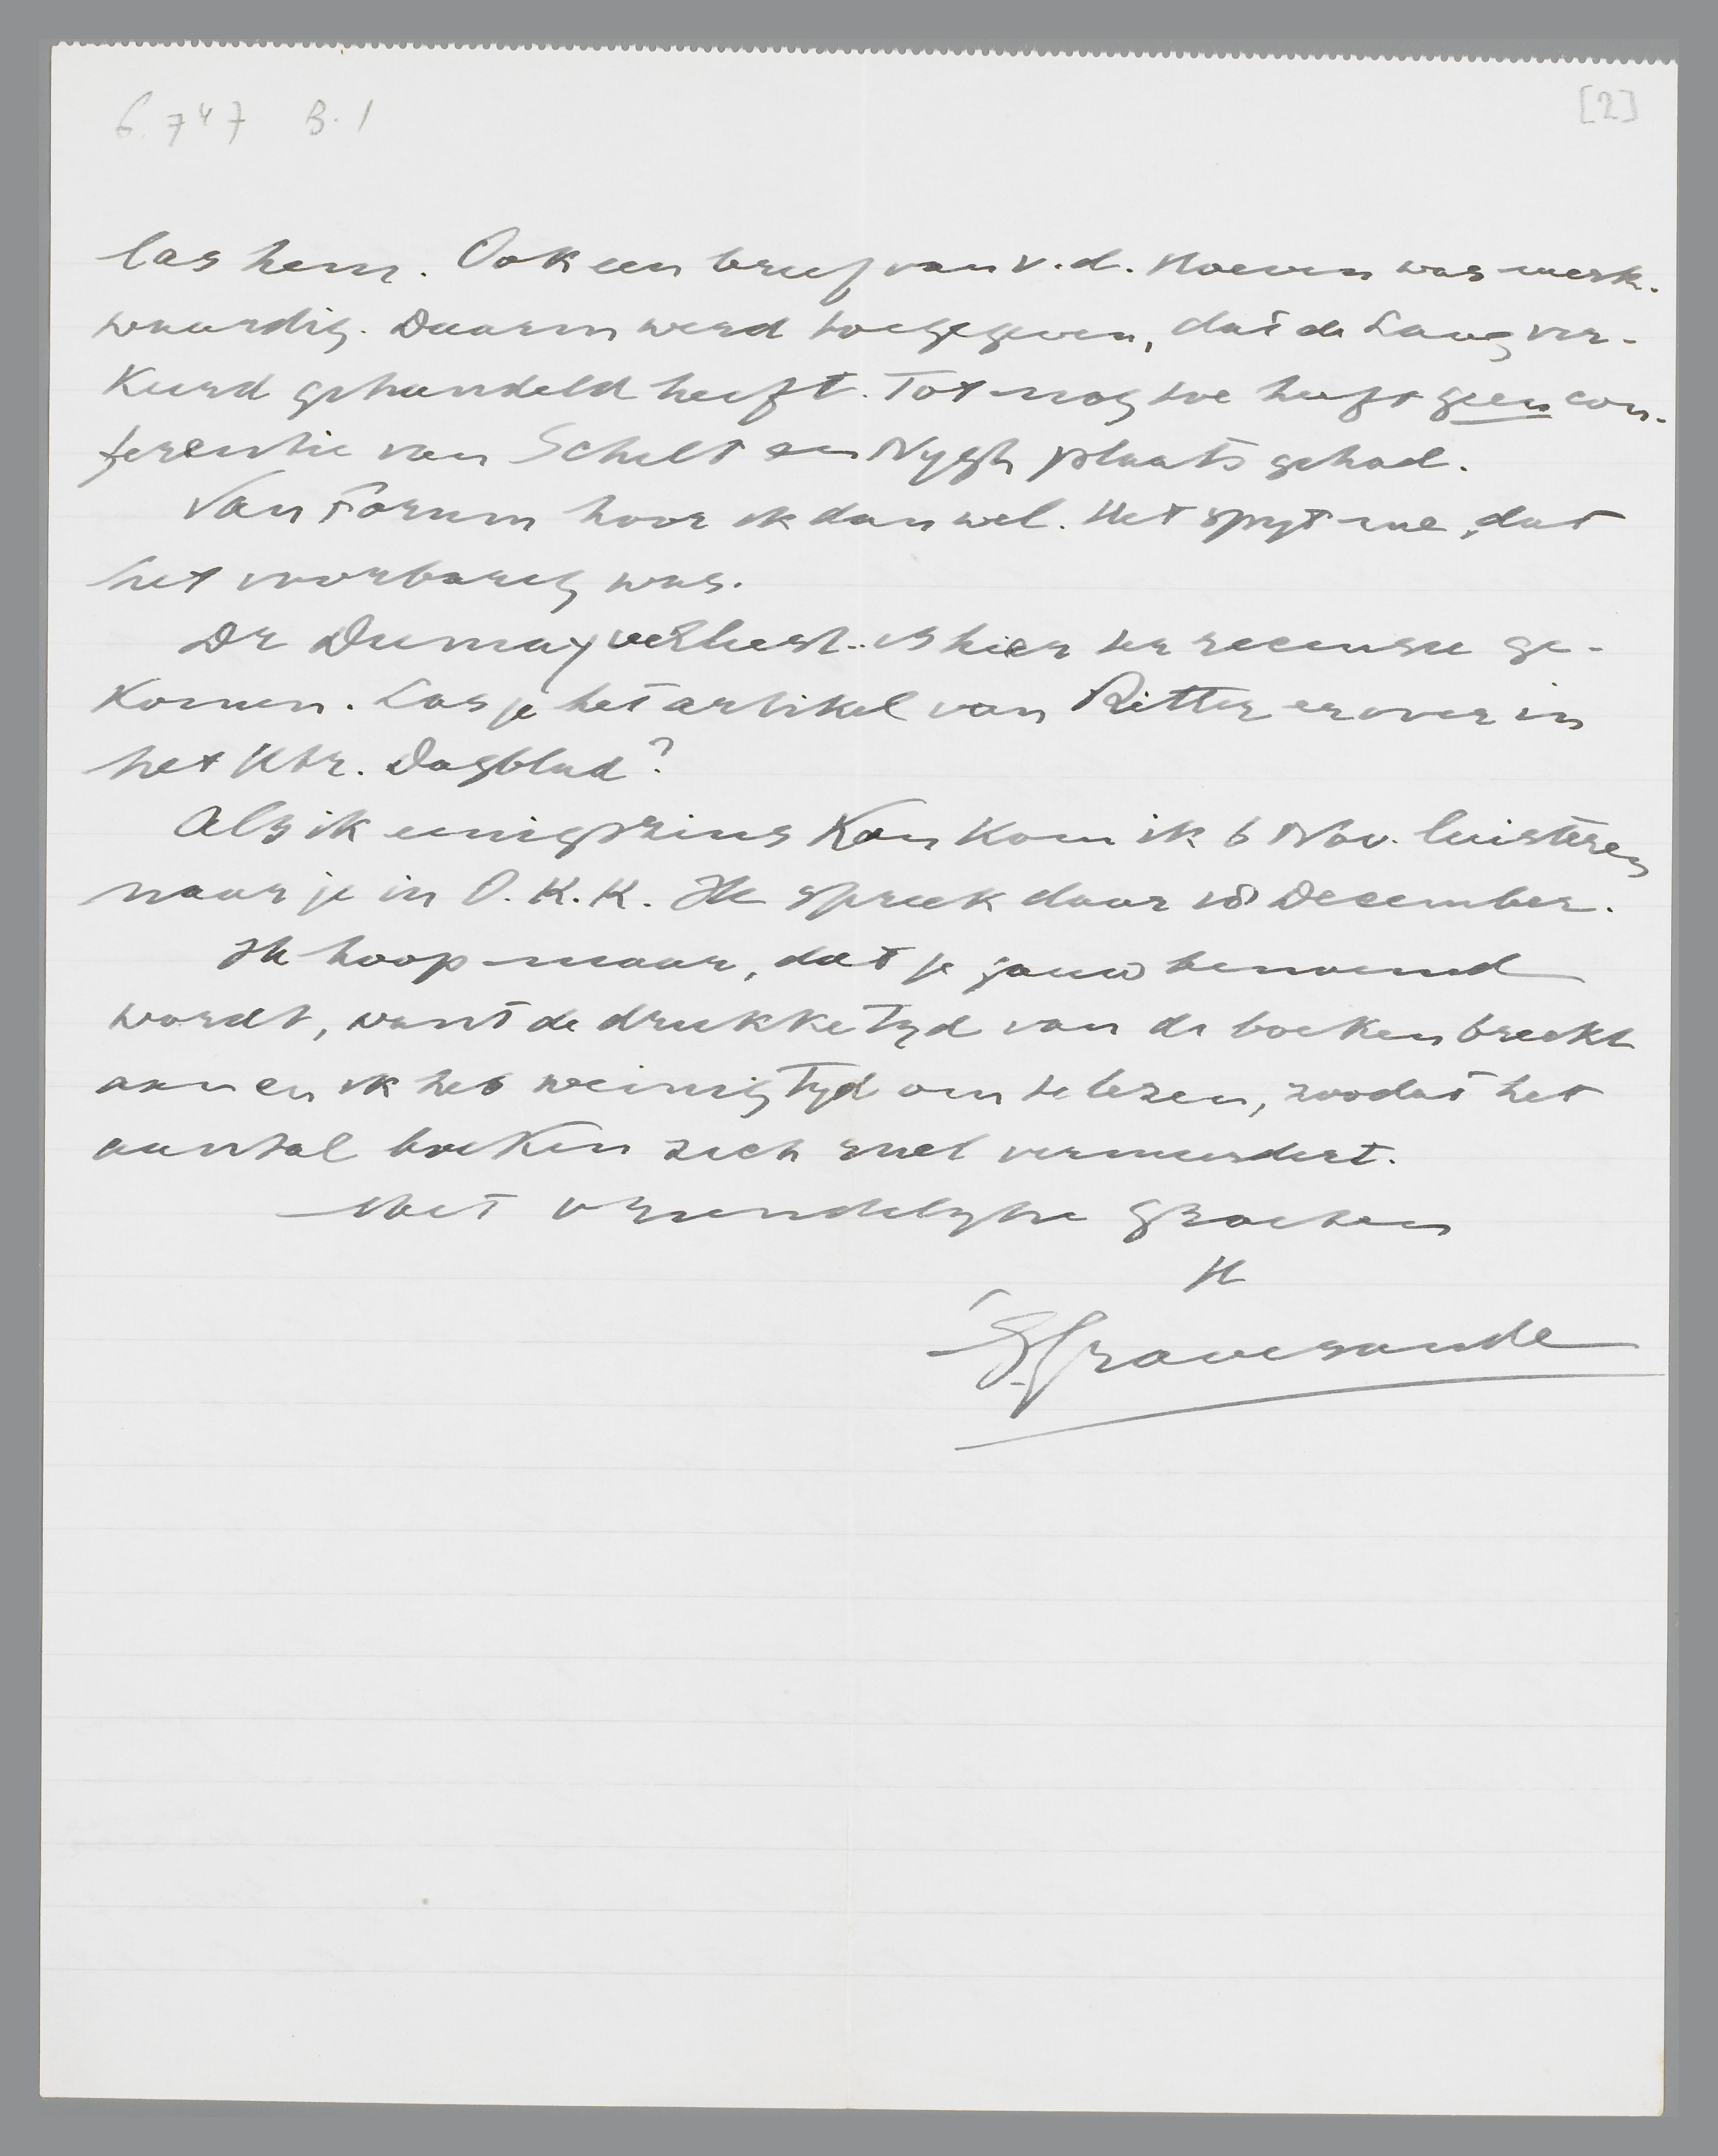 G. 747 B. 1
[2]
las hem. Ook een brief van v. d. Hoeven was merk-
waardig. Daarin werd toegegeven, dat de Lang ver-
keerd gehandeld heeft. Tot nog toe heeft geen con-
ferentie van Schelt en Nygh plaats gehad.
Van Forum hoor ik dan wel. Het spyt me, dat
het voorbarig was.
Dr Dumay verliest.. is hier ter recensie ge-
komen. Las je het artikel van Ritter erover in
het Utr. Dagblad?
Als ik eenigszins kan kom ik 6 Nov. luisteren
naar je in O. K. K. Ik spreek daar 18 December.
Ik hoop maar, dat je gauw benoemd
wordt, want de drukke tyd van de boeken breekt
aan en ik heb weinig tyd om te lezen, zoodat het
aantal boeken zich snel vermeerdert.
Met vriendelyke groeten
tt
's Gravesande